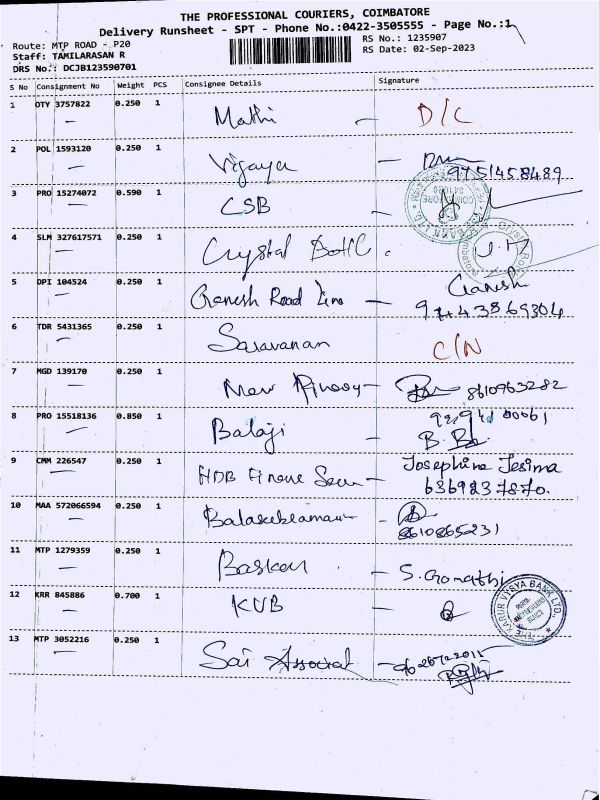 THE PROFESSIONAL COURIERS, COIMBATORE
Delivery Runsheet - SPT - Phone No.:0422-3505555 - Page No.:1
Route: MTP ROAD - P20
RS No.: 1235907
Staff: TAMILARASAN R
RS Date: 02-Sep-2023
DRS No.: DCJB123590701
S No Consignment No Weight PCS Consignee Details Signature
1 OTY 3757822 0.250 1 Mathi – D/C
2 POL 1593120 0.250 1 Vijaya – 9751458489
3 PRO 15274072 0.590 1 CSB –
4 SLM 327617571 0.250 1 Crystal
5 DPI 104524 0.250 1 Ganesh Road Line – Ganesh
6 TDR 5431365 0.250 1 Saravanan C/N
7 MGD 139170 0.250 1 New – 8610963282
8 PRO 15518136 0.850 1 Balaji –
9 CMM 226547 0.250 1 HDB Finane Secu – Josephine Jesima
6369237870.
10 MAA 572066594 0.250 1
8610865231
11 MTP 1279359 0.250 1 Baskar – S. Gomathi
12 KRR 845886 0.700 1 KVB –
THE KARUR VYSYA BANK LTD.
13 MTP 3052216 0.250 1 Sai Associat –